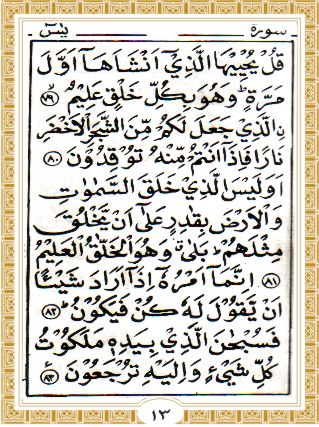 سورة يٰسٓ
قُلْ يُحْيِيْهَا الَّذِيْٓ اَنْشَاَهَآ اَوَّلَ
مَرَّةٍ ؕ وَهُوَ بِكُلِّ خَلْقٍ عَلِيْمُ ۙ ﴿۷۹﴾
نِالَّذِيْ جَعَلَ لَكُمْ مِّنَ الشَّجَرِ الْاَخْضَرِ
نَارًا فَاِذَآ اَنْتُمْ مِّنْهُ تُوْقِدُوْنَ ﴿۸۰﴾
اَوَلَيْسَ الَّذِيْ خَلَقَ السَّمٰوٰتِ
وَالْاَرْضَ بِقٰدِرٍ عَلٰٓى اَنْ يَّخْلُقَ
مِثْلَهُمْ ؕ بَلٰى ۗ وَهُوَ الْخَلّٰقُ الْعَلِيْمُ
﴿۸۱﴾ اِنَّمَآ اَمْرُهٗٓ اِذَآ اَرَادَ شَيْـًٔا
اَنْ يَّقُوْلَ لَهٗ كُنْ فَيَكُوْنُ ﴿۸۲﴾
فَسُبْحٰنَ الَّذِيْ بِيَدِهٖ مَلَكُوْتُ
كُلِّ شَيْءٍ وَّاِلَيْهِ تُرْجَعُوْنَ ﴿۸۳﴾
١٣